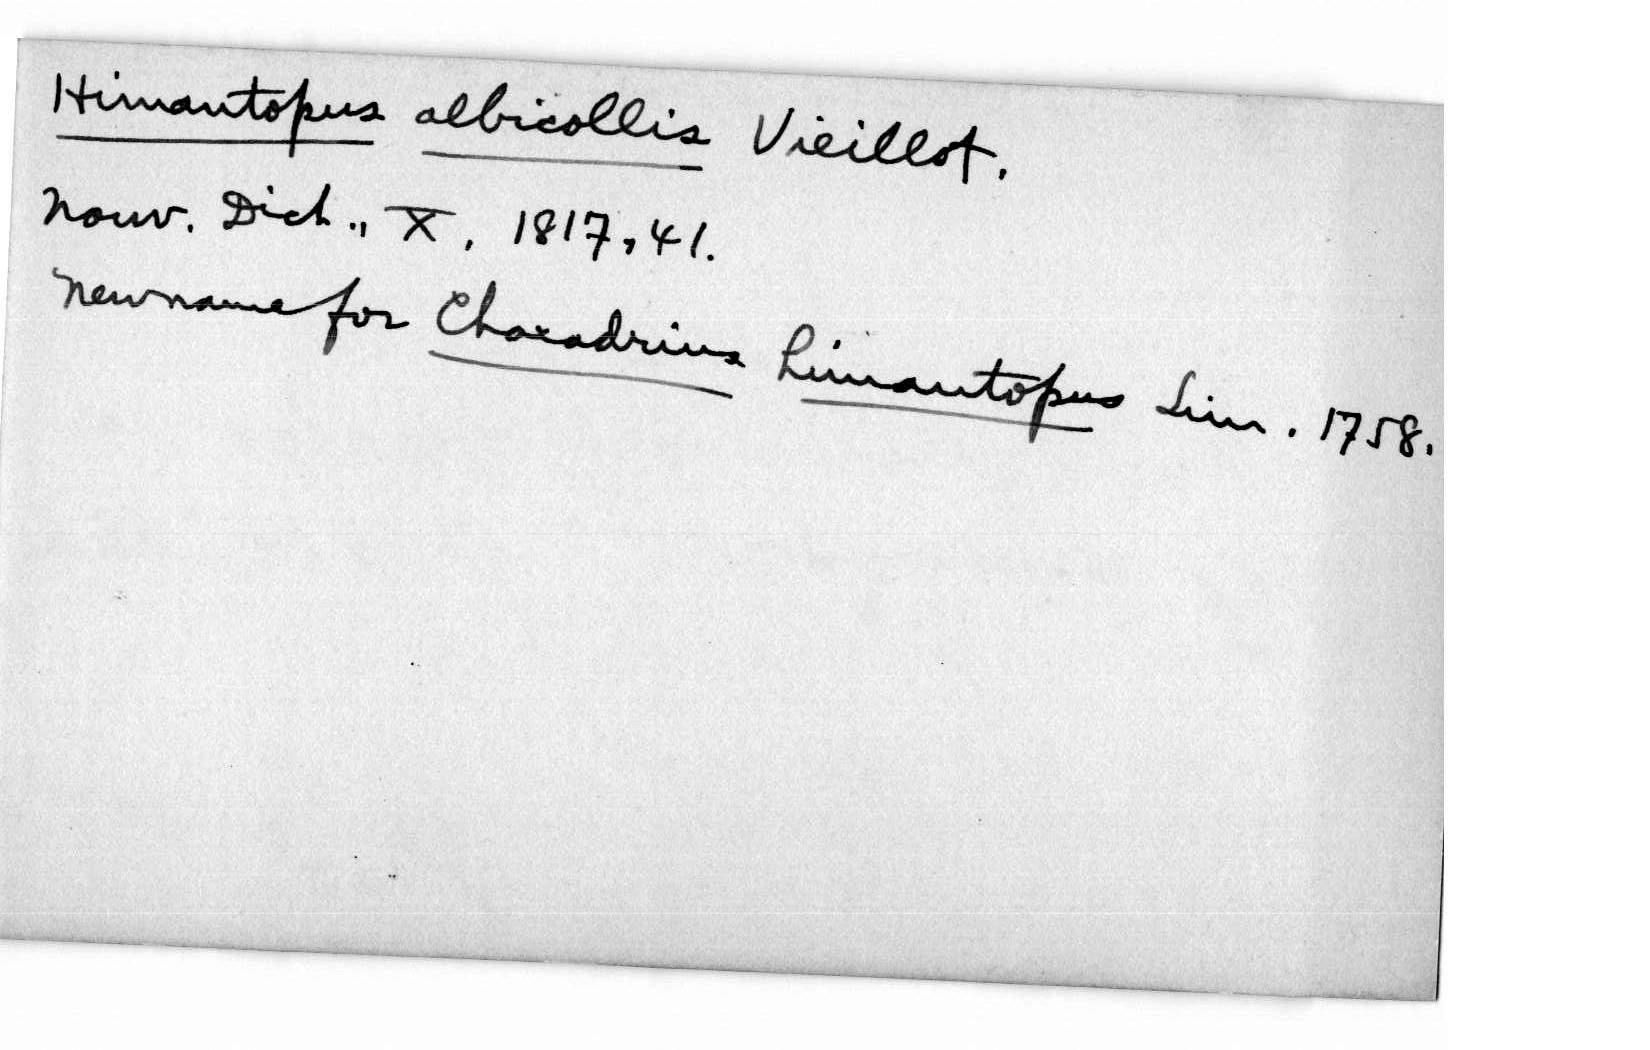 Himantopus albicollis Vieillot.
Nouv. Dict., X, 1817, 41.
New name for Charadrius himantopus Linn. 1758.